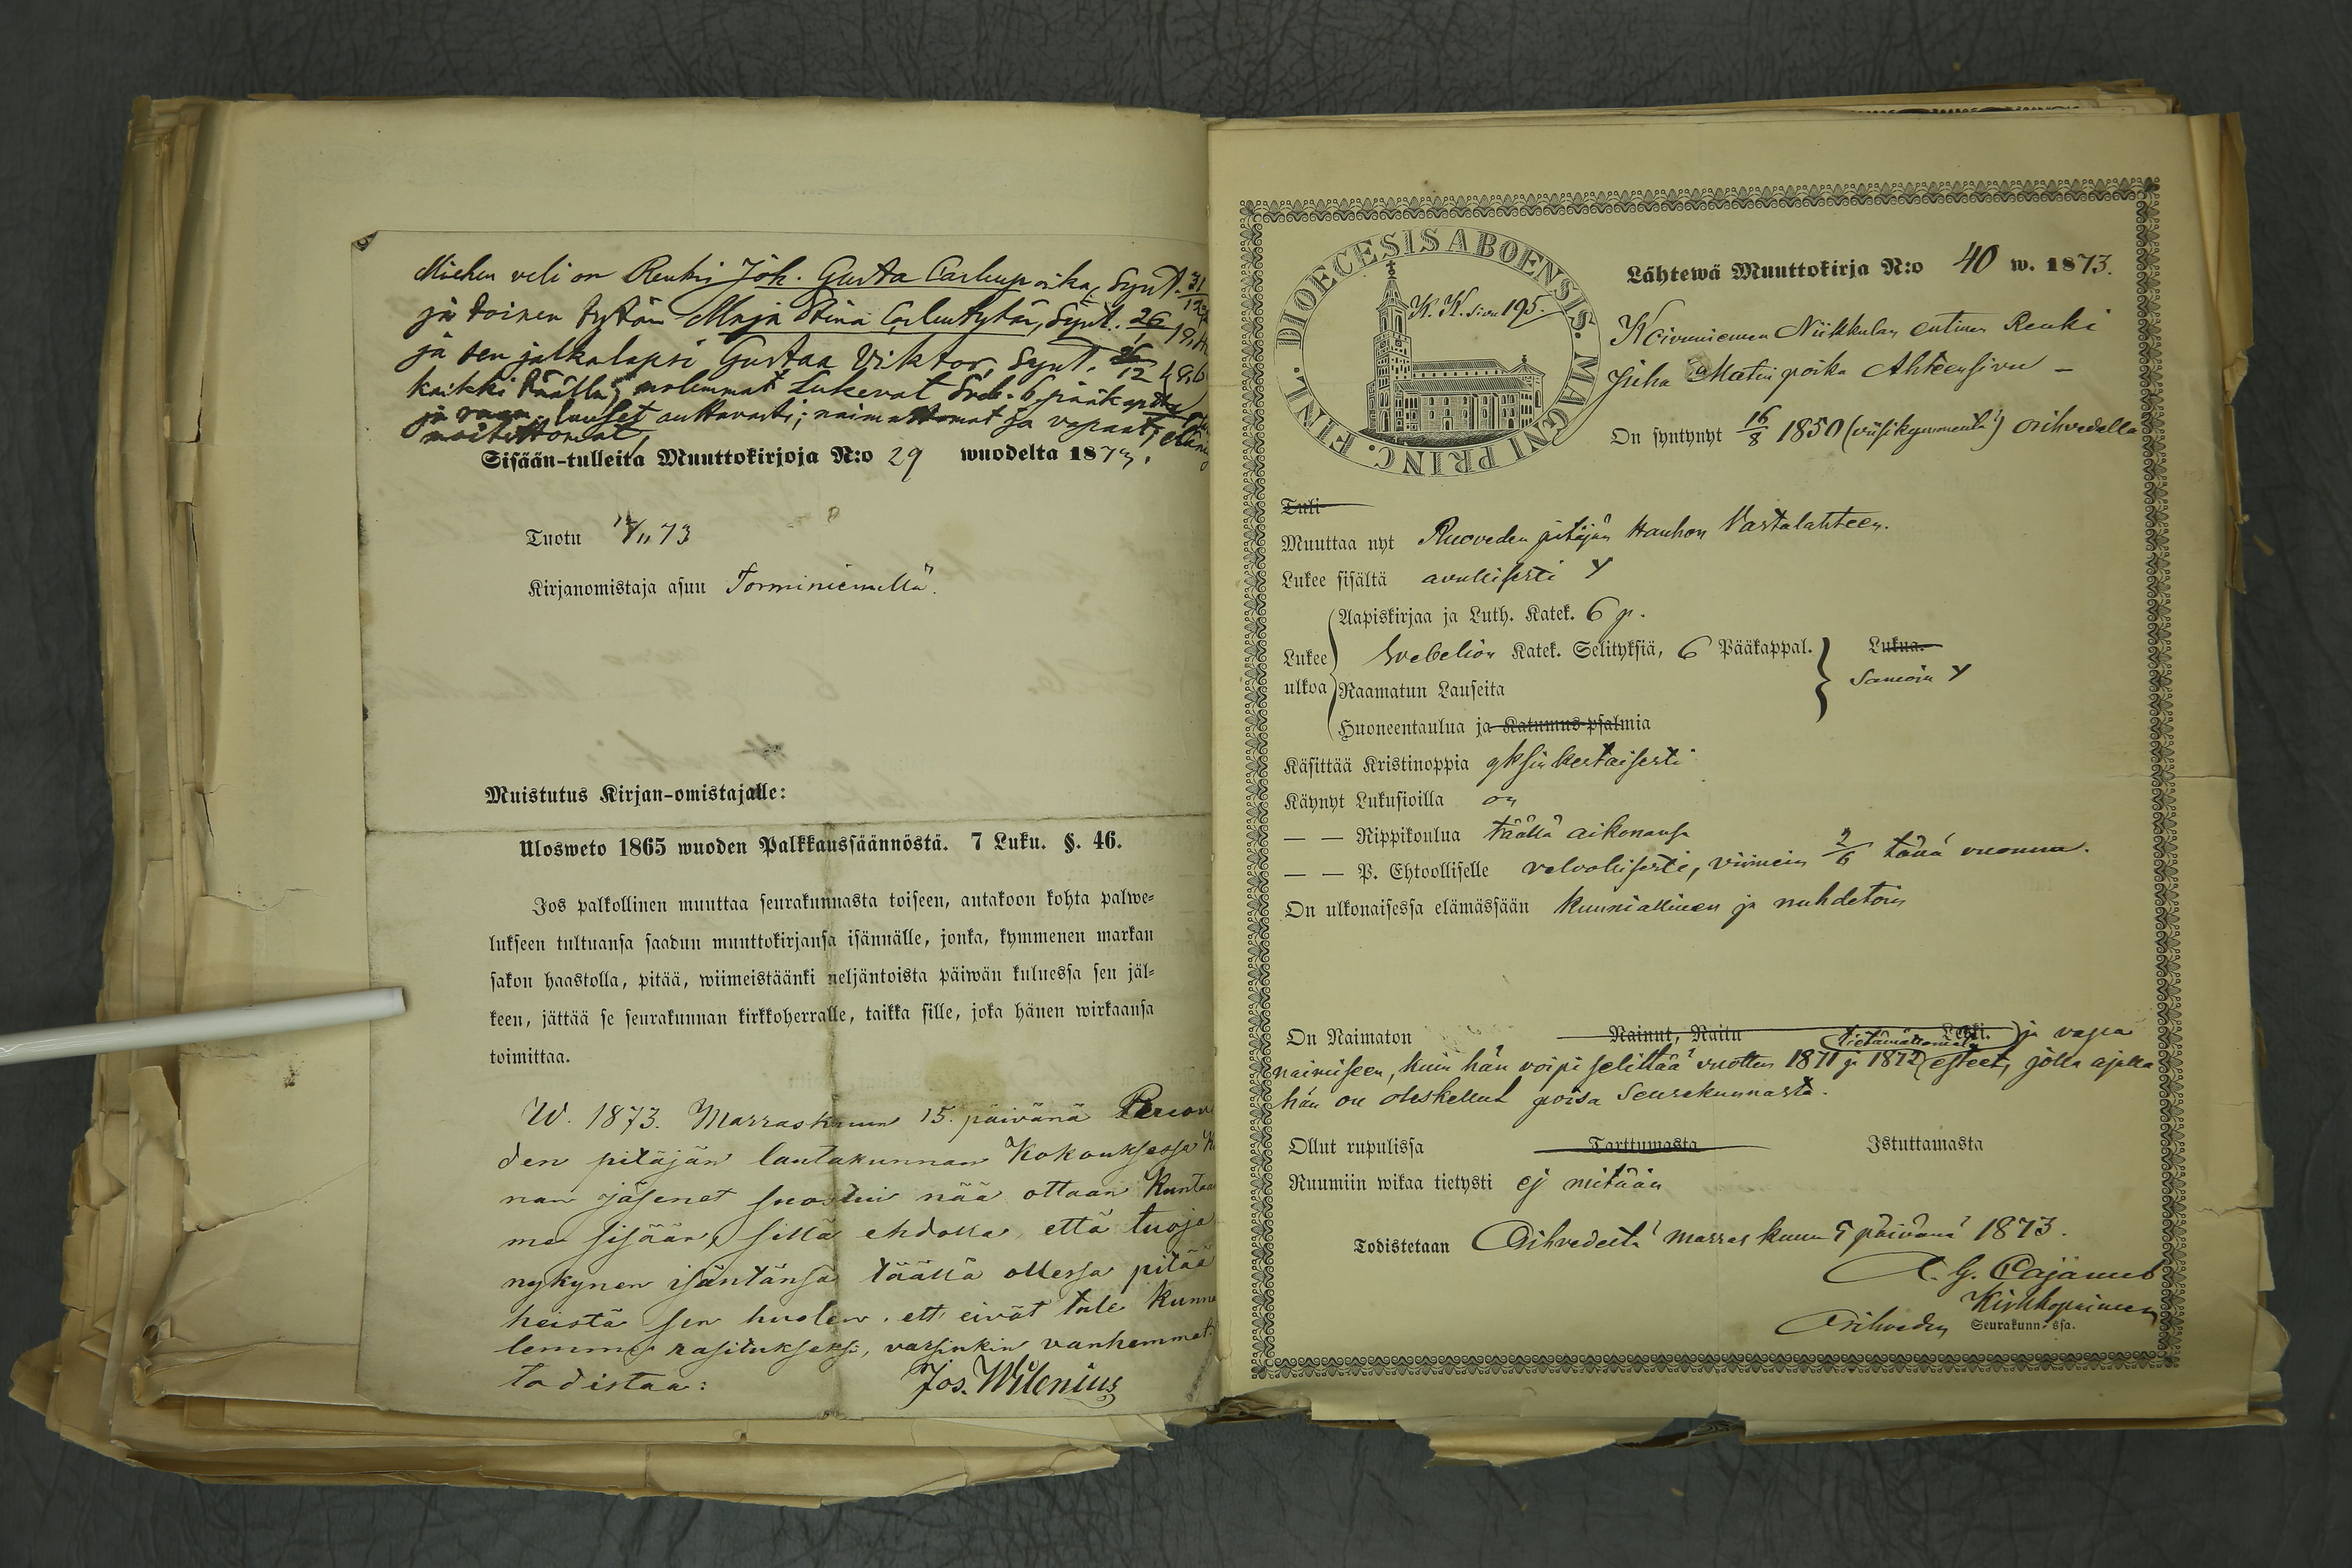 Miehen veli on Renki Joh. Gusta Carlinpoika, Synt. 31
ja toinen tytön Maja Stina Carlintytär, Synt. 26
ja sen jalkalapsi Gustaa Viktor, Synt.
kaikki täällä; molemmat Lukevat Sveb. 6 pääkapp
ja raam. lauset auttavasti; naimattomat ja vapaat;
moitittomat,
Sisään-tulleita Muuttokirjoja N:o 29 wuodelta 1873.
Tuotu 73
Kirjanomistaja asuu Torminiemellä.
Muistutus Kirjan-omistajalle:
Ulosweto 1865 wuoden Palkkaussäännöstä. 7 Luku. §. 46.
Jos palkollinen muuttaa seurakunnasta toiseen, antakoon kohta palwe-
lukseen tultuansa saadun muuttokirjansa isännälle, jonka, kymmenen markan
sakon haastolla, pitää, wiimeistäänki neljäntoista päiwän kuluessa sen jäl-
keen, jättää se seurakunnan kirkkoherralle, taikka sille, joka hänen wirkaansa
toimittaa.
W. 1873. Marraskuun 15. päivänä
den pitäjän lautakunnan Kokouksessa
nan jäsenet suostui nää ottaan Kuntaa
me sisään, sillä ehdolla, että tuoja
nykynen isäntänsä täällä ollessa pitää
heistä sen huolen, ett' eivät tule Kunna
lemme rasitukseksi, varsinkin vanhemmat.
todistaa: Jos. Wilenius
DIOECESIS ABOENSIS. MAGNI PRINC. FINL.
K. K. sivu 195.
Lähtewä Muuttokirja N:o 40 w. 1873.
Koivuniemen Niikkulan entinen Renki
Juha Matinpoika Ahteensivu –
On syntynyt 16/8 1850 (viisikymmentä) Orihvedellä
Tuli
Muuttaa nyt Ruoveden pitäjän Hauhon Vastalahteen.
Lukee sisältä avullisesti Y
Aapiskirjaa ja Luth. Katek. 6 p.
Lukee Svebeliön Katek. Selityksiä, 6 Pääkappal. Lukua.
ulkoa Raamatun Lauseita Samoin Y
Huoneentaulua ja Katumus-psalmia
Käsittää Kristinoppia yksinkertaisesti
Käynyt Lukusioilla on
— — Rippikoulua täällä aikonansa
— — P. Ehtoolliselle velvollisesti, viimein 2/6 tänä vuonna.
On ulkonaisessa elämässään kunniallinen ja nuhdetoin
On Naimaton Nainut, Naitu Leski. ja vapaa
naimiseen, kuin hän voipi selittää vuotten 1871 ja 1872 esteet, jolla ajalla
hän on oleskellut poisa Seurakunnasta.
Ollut rupulissa Tarttumasta Istuttamasta
Ruumiin wikaa tietysti ej mitään
Todistetaan Orihvedestä marraskuun 5 päivänä 1873.
A. G. Cajanus
Kirkkopaimen
Orihveden Seurakunnassa.